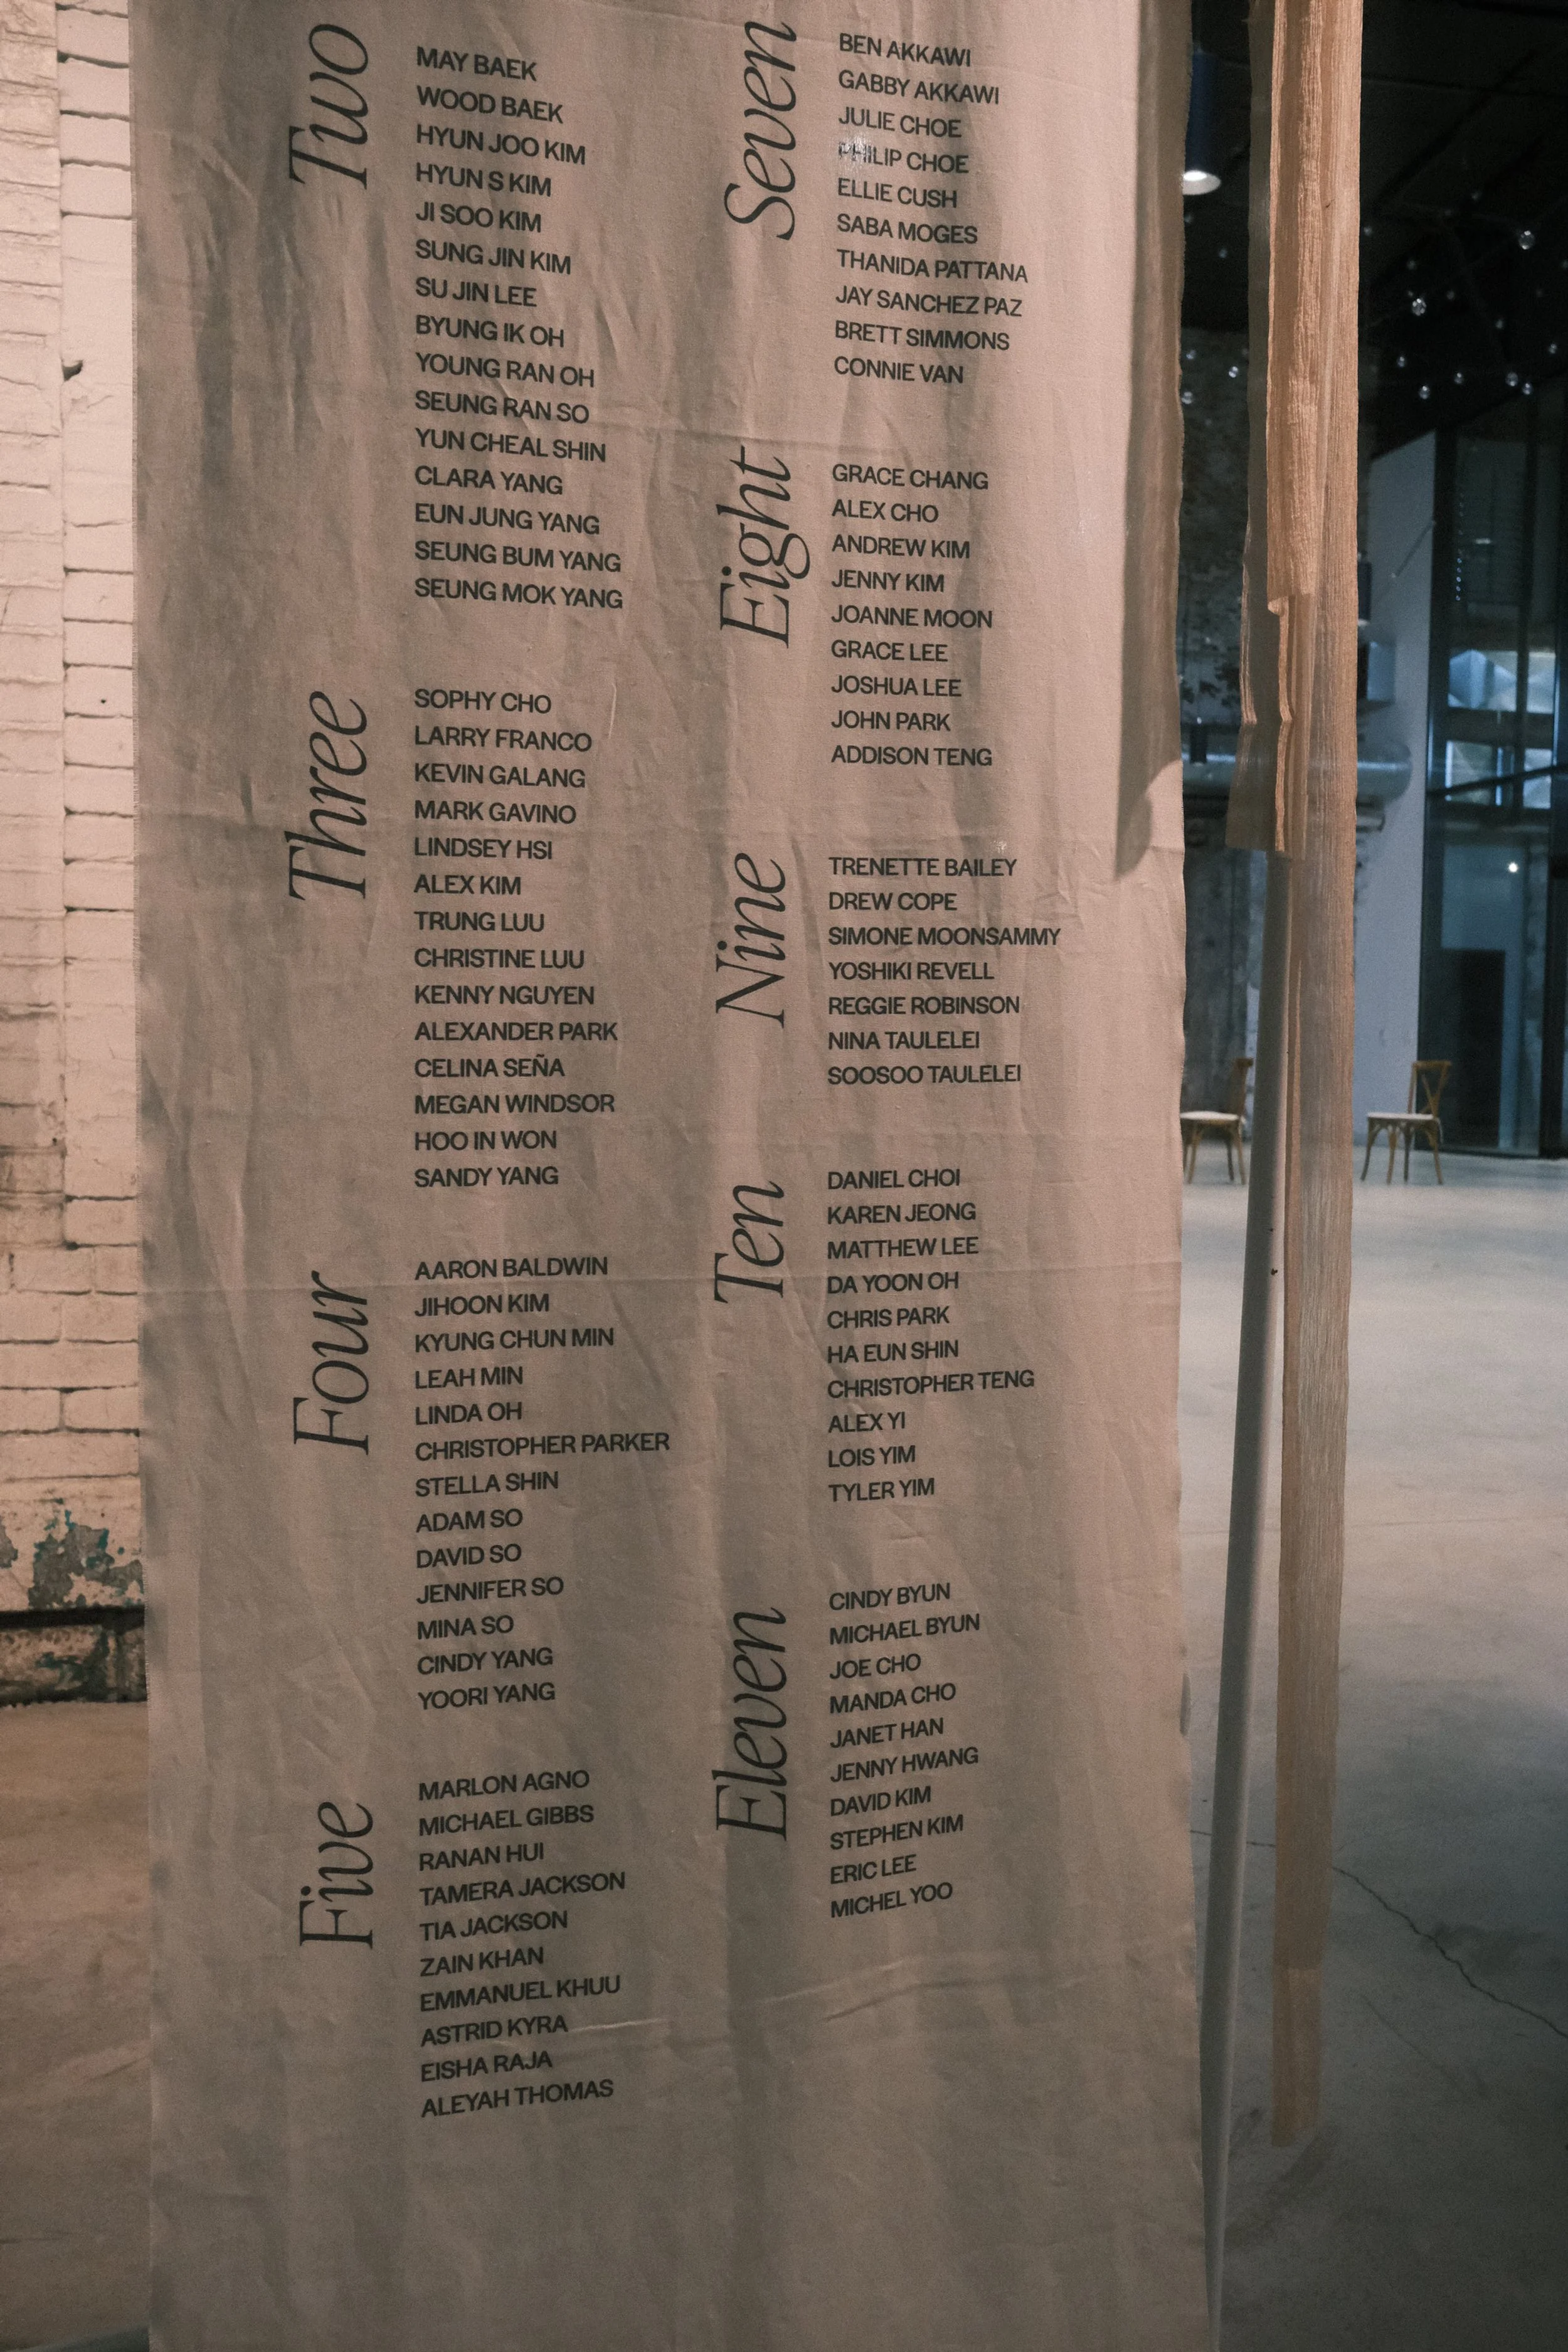 Two
MAY BAEK
WOOD BAEK
HYUN JOO KIM
HYUN S KIM
JI SOO KIM
SUNG JIN KIM
SU JIN LEE
BYUNG IK OH
YOUNG RAN OH
SEUNG RAN SO
YUN CHEAL SHIN
CLARA YANG
EUN JUNG YANG
SEUNG BUM YANG
SEUNG MOK YANG
Three
SOPHY CHO
LARRY FRANCO
KEVIN GALANG
MARK GAVINO
LINDSEY HSI
ALEX KIM
TRUNG LUU
CHRISTINE LUU
KENNY NGUYEN
ALEXANDER PARK
CELINA SEÑA
MEGAN WINDSOR
HOO IN WON
SANDY YANG
Four
AARON BALDWIN
JIHOON KIM
KYUNG CHUN MIN
LEAH MIN
LINDA OH
CHRISTOPHER PARKER
STELLA SHIN
ADAM SO
DAVID SO
JENNIFER SO
MINA SO
CINDY YANG
YOORI YANG
Five
MARLON AGNO
MICHAEL GIBBS
RANAN HUI
TAMERA JACKSON
TIA JACKSON
ZAIN KHAN
EMMANUEL KHUU
ASTRID KYRA
EISHA RAJA
ALEYAH THOMAS
Seven
BEN AKKAWI
GABBY AKKAWI
JULIE CHOE
PHILIP CHOE
ELLIE CUSH
SABA MOGES
THANIDA PATTANA
JAY SANCHEZ PAZ
BRETT SIMMONS
CONNIE VAN
Eight
GRACE CHANG
ALEX CHO
ANDREW KIM
JENNY KIM
JOANNE MOON
GRACE LEE
JOSHUA LEE
JOHN PARK
ADDISON TENG
Nine
TRENETTE BAILEY
DREW COPE
SIMONE MOONSAMMY
YOSHIKI REVELL
REGGIE ROBINSON
NINA TAULELEI
SOOSOO TAULELEI
Ten
DANIEL CHOI
KAREN JEONG
MATTHEW LEE
DA YOON OH
CHRIS PARK
HA EUN SHIN
CHRISTOPHER TENG
ALEX YI
LOIS YIM
TYLER YIM
Eleven
CINDY BYUN
MICHAEL BYUN
JOE CHO
MANDA CHO
JANET HAN
JENNY HWANG
DAVID KIM
STEPHEN KIM
ERIC LEE
MICHEL YOO